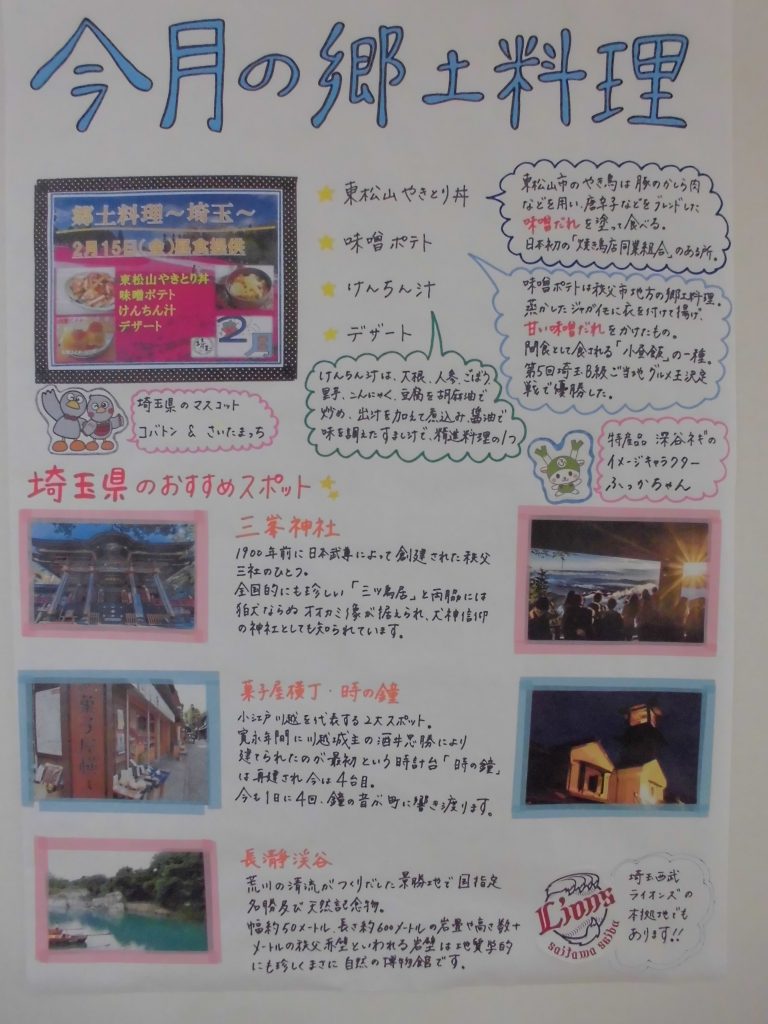 今月の郷土料理
郷土料理～埼玉～
2月15日(金)昼食提供
東松山やきとり丼
味噌ポテト
けんちん汁
デザート
2月
東松山やきとり丼
味噌ポテト
けんちん汁
デザート
東松山市のやき鳥は豚のかしら肉
などを用い、唐辛子などをブレンドした
味噌だれを塗って食べる。
日本初の「焼き鳥店同業組合」のある所。
味噌ポテトは秩父市地方の郷土料理。
蒸かしたジャガイモに衣を付けて揚げ、
甘い味噌だれをかけたもの。
間食として食される「小昼飯」の一種。
第5回埼玉B級ご当地グルメ王決定
戦で優勝した。
けんちん汁は、大根、人参、ごぼう、
里芋、こんにゃく、豆腐を胡麻油で
炒め、出汁を加えて煮込み、醤油で
味を調えたすまし汁で、精進料理の1つ
埼玉県のマスコット
コバトン & さいたまっち
特産品 深谷ネギの
イメージキャラクター
ふっかちゃん
埼玉県のおすすめスポット
三峯神社
1900年前に日本武尊によって創建された秩父
三社のひとつ。
全国的にも珍しい「三ツ鳥居」と両脇には
狛犬ならぬオオカミ像が据えられ、犬神信仰
の神社としても知られています。
菓子屋横丁・時の鐘
小江戸川越を代表する2大スポット。
寛永年間に川越城主の酒井忠勝により
建てられたのが最初という時計台「時の鐘」
は再建され今は4台目。
今も1日に4回、鐘の音が町に響き渡ります。
菓子屋横
長瀞渓谷
荒川の清流がつくりだした景勝地で国指定
名勝及び天然記念物。
幅約50メートル、長さ約600メートルの岩畳や高さ数十
メートルの秩父赤壁といわれる岩壁は地質学的
にも珍しくまさに自然の博物館です。
Lions
saitama seibu
埼玉西武
ライオンズの
本拠地でも
あります!!